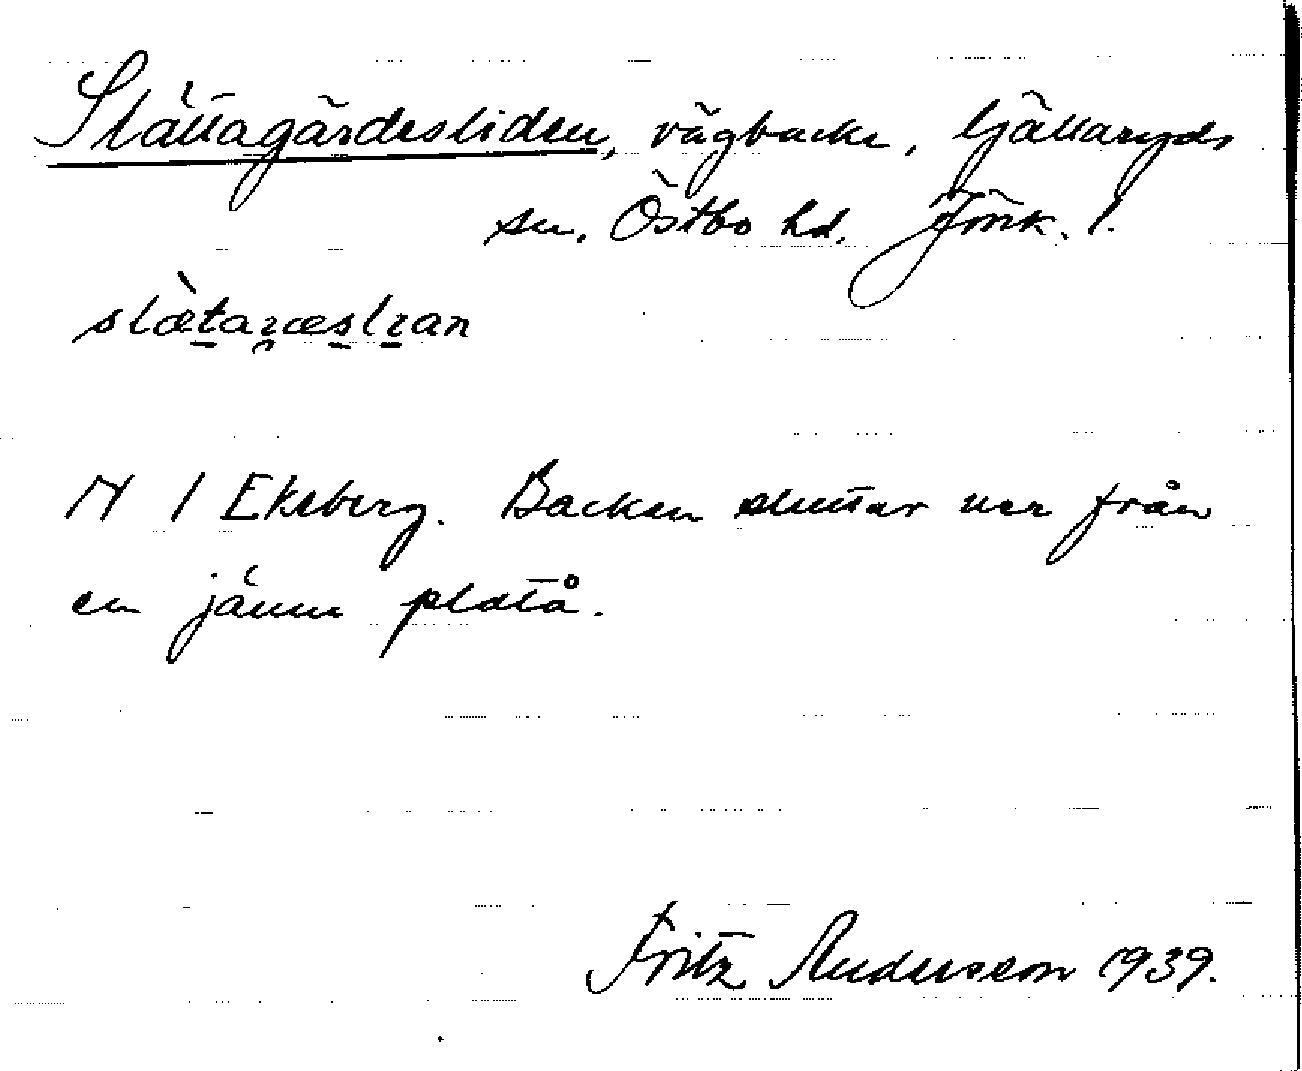 Slättagärdesliden, vägbacke, Gällaryds
sn. Östbo hd. Jönk. l.
slætaræslɩan
N / Ekeberg. Backen sluttar ner från
en jämn platå.
Fritz Andersson 1939.